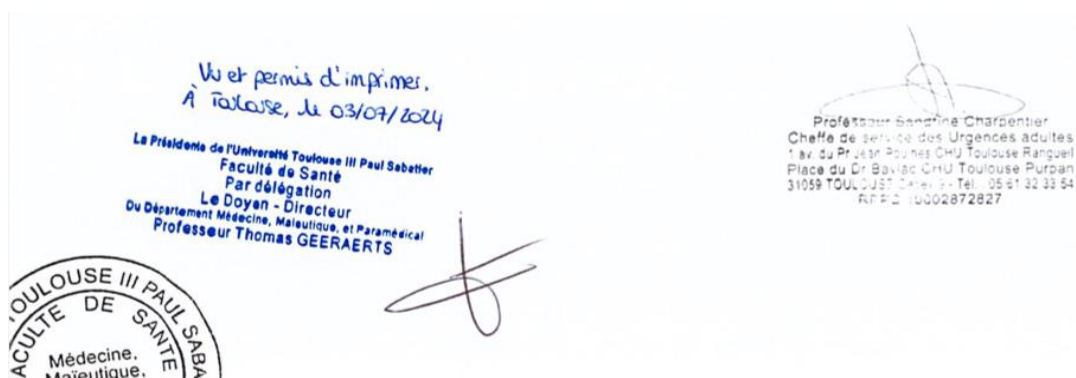 Vu et permis d'imprimer.
À Toulouse, le 03/07/2024
La Présidente de l'Université Toulouse III Paul Sabatier
Faculté de Santé
Par délégation
Le Doyen - Directeur
Du Département Médecine, Maïeutique, et Paramédical
Professeur Thomas GEERAERTS
Professeur Sandrine Charpentier
Cheffe de service des Urgences adultes
1 av. du Pr Jean Poulhes CHU Toulouse Rangueil
Place du Dr Baylac CHU Toulouse Purpan
31059 TOULOUSE Cedex 9 - Tél. : 05 61 32 33 54
RPPS 10002872827
TOULOUSE III PAUL SABA
FACULTE DE SANTE
Médecine,
Maïeutique,